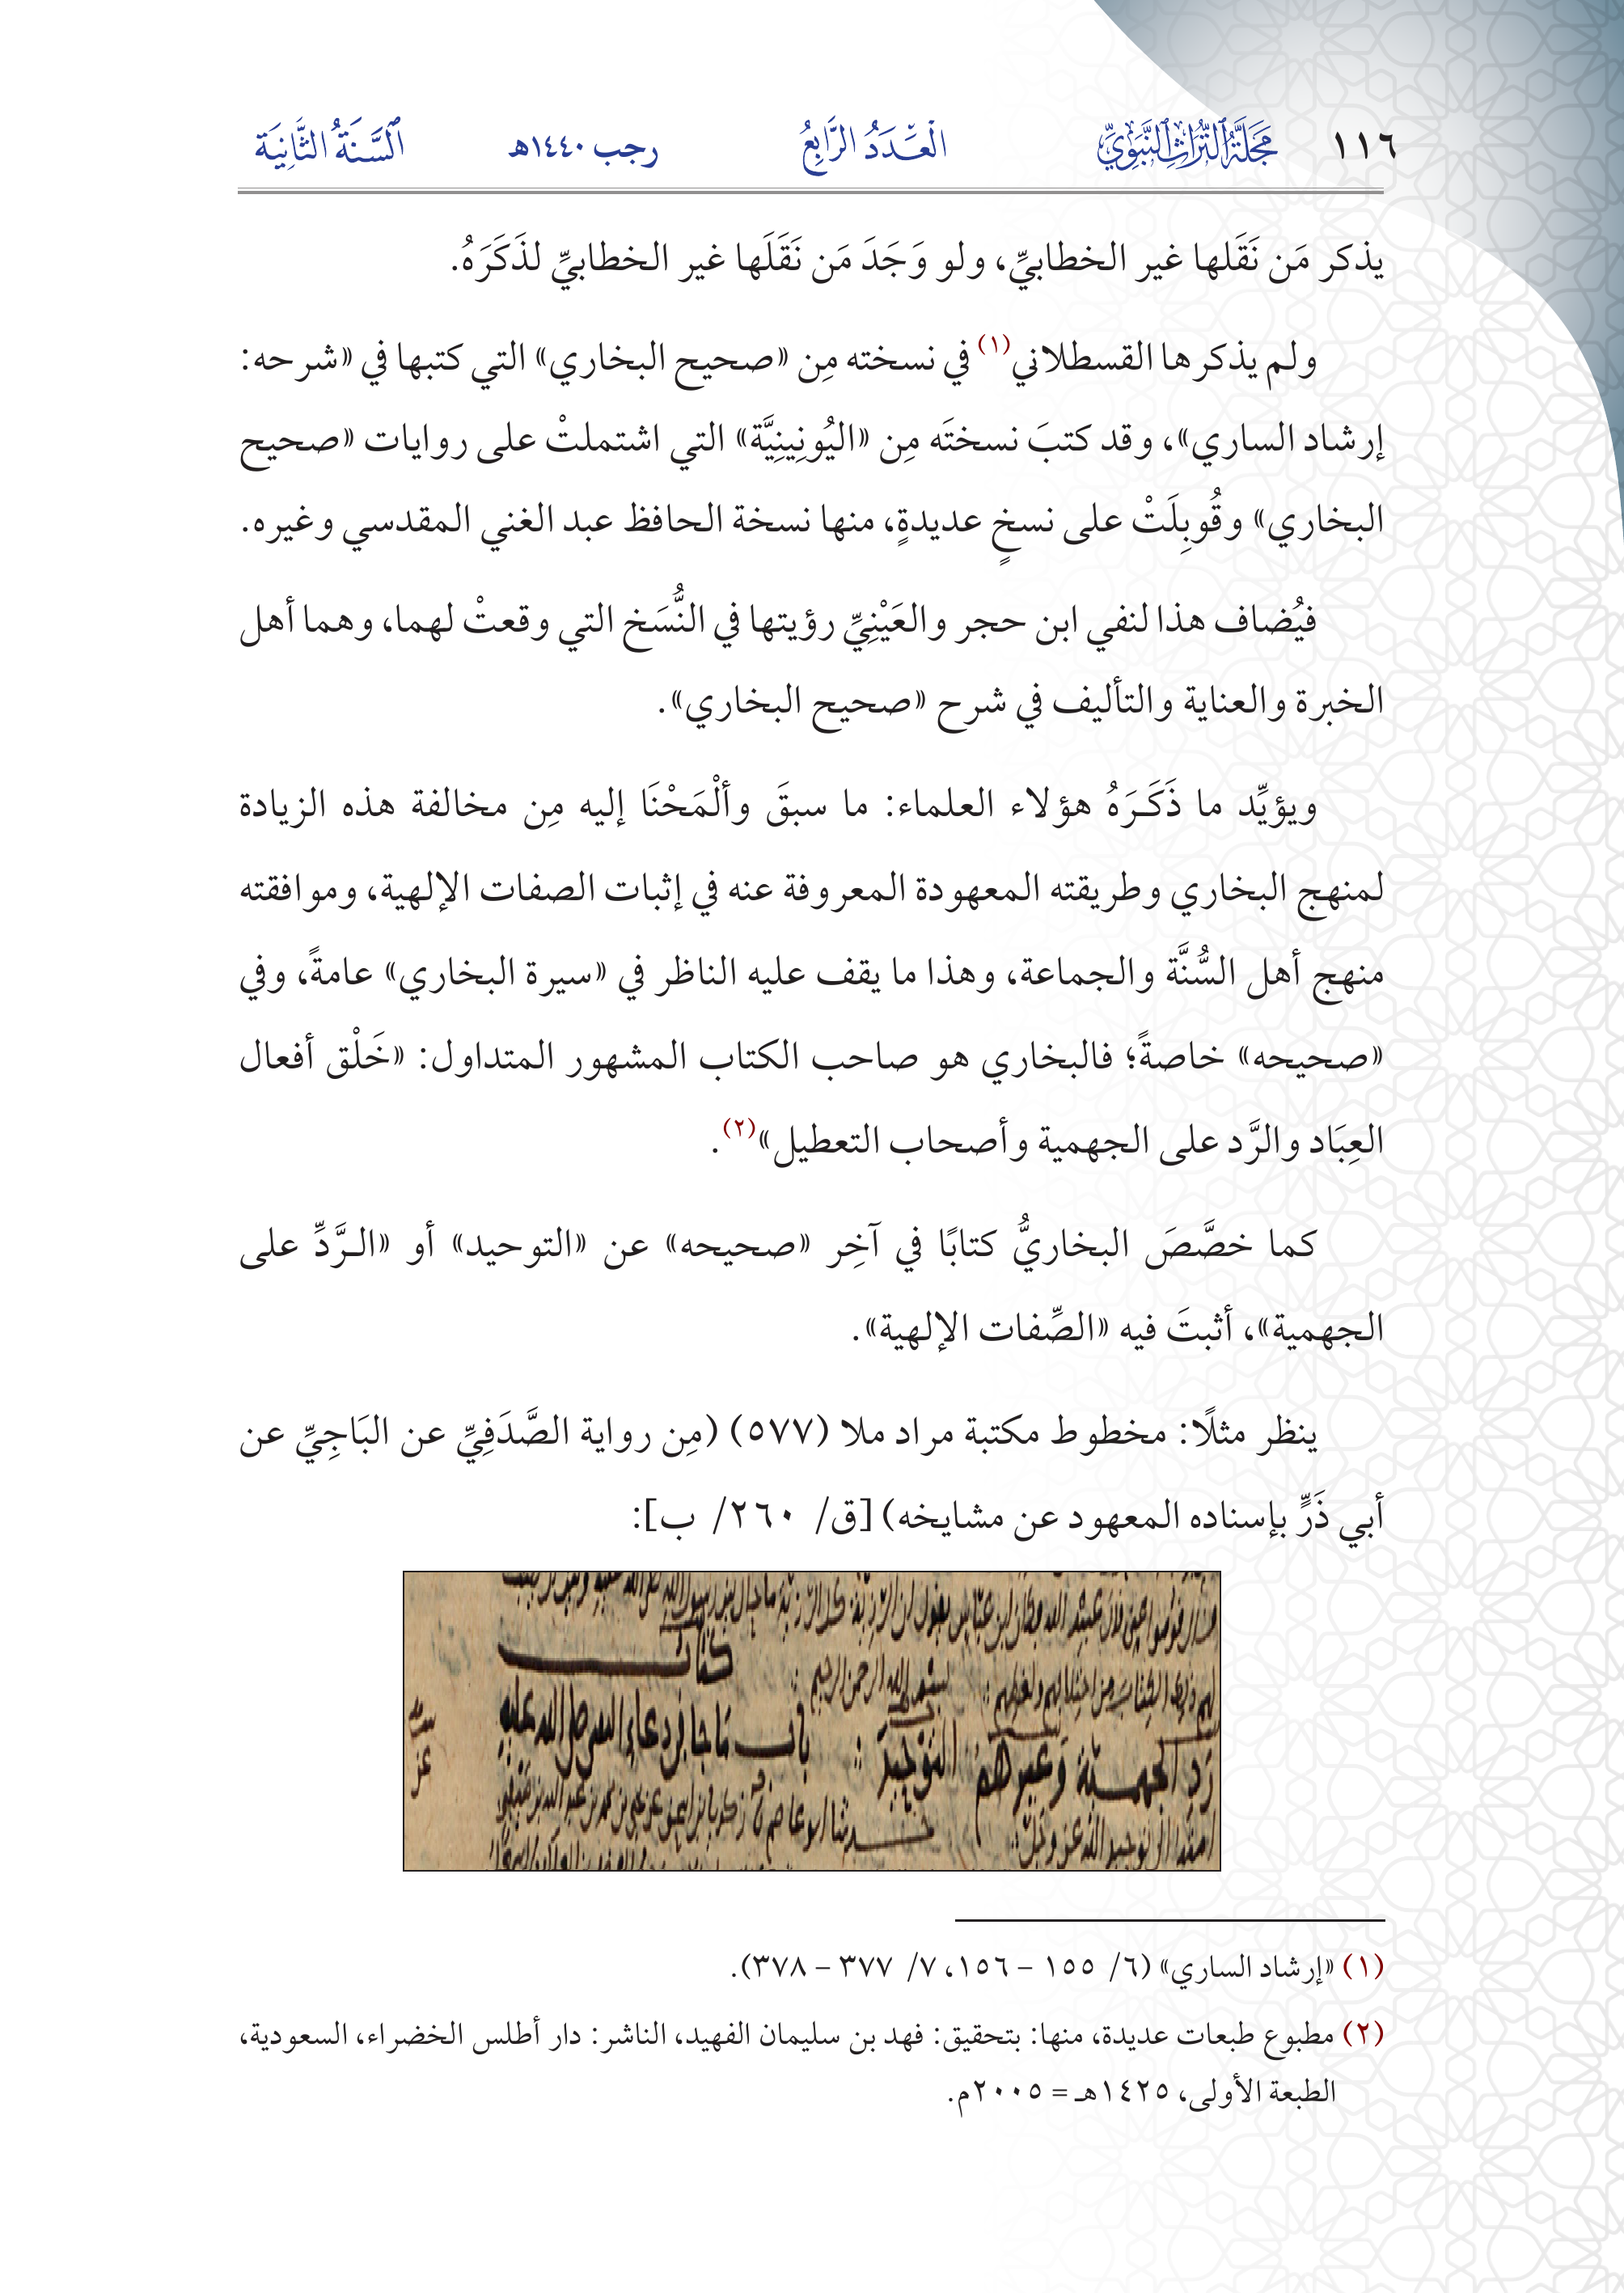 ١١٦ مَجَلَّةُ التُّرَاثِ النَّبَوِيِّ العَدَدُ الرَّابِعُ رجب ١٤٤٠هـ السَّنَةُ الثَّانِيَة
يذكر مَن نَقَلها غير الخطابيِّ، ولو وَجَدَ مَن نَقَلَها غير الخطابيِّ لذَكَرَهُ.
ولم يذكرها القسطلاني(١) في نسخته مِن «صحيح البخاري» التي كتبها في «شرحه:
إرشاد الساري»، وقد كتبَ نسختَه مِن «اليُونِينِيَّة» التي اشتملتْ على روايات «صحيح
البخاري» وقُوبِلَتْ على نسخٍ عديدةٍ، منها نسخة الحافظ عبد الغني المقدسي وغيره.
فيُضاف هذا لنفي ابن حجر والعَيْنِيِّ رؤيتها في النُّسَخ التي وقعتْ لهما، وهما أهل
الخبرة والعناية والتأليف في شرح «صحيح البخاري».
ويؤيِّد ما ذَكَـرَهُ هؤلاء العلماء: ما سبقَ وألْمَحْنَا إليه مِن مخالفة هذه الزيادة
لمنهج البخاري وطريقته المعهودة المعروفة عنه في إثبات الصفات الإلهية، وموافقته
منهج أهل السُّنَّة والجماعة، وهذا ما يقف عليه الناظر في «سيرة البخاري» عامةً، وفي
«صحيحه» خاصةً؛ فالبخاري هو صاحب الكتاب المشهور المتداول: «خَلْق أفعال
العِبَاد والرَّد على الجهمية وأصحاب التعطيل»(٢).
كما خصَّصَ البخاريُّ كتابًا في آخِر «صحيحه» عن «التوحيد» أو «الـرَّدِّ على
الجهمية»، أثبتَ فيه «الصِّفات الإلهية».
ينظر مثلًا: مخطوط مكتبة مراد ملا (٥٧٧) (مِن رواية الصَّدَفِيِّ عن البَاجِيِّ عن
أبي ذَرٍّ بإسناده المعهود عن مشايخه) [ق/ ٢٦٠/ ب]:
كتاب
لهم ذلك الكتاب من اختلافهم ولغطهم بسم الله الرحمن الرحيم
رد الجهمية وغيرهم التوحيد باب ما جا في دعاء النبي صلى الله عليه
امته الى توحيد الله عز وجل حدثنا ابو عاصم
(١) «إرشاد الساري» (٦/ ١٥٥ – ١٥٦، ٧/ ٣٧٧ – ٣٧٨).
(٢) مطبوع طبعات عديدة، منها: بتحقيق: فهد بن سليمان الفهيد، الناشر: دار أطلس الخضراء، السعودية،
الطبعة الأولى، ١٤٢٥هـ = ٢٠٠٥م.